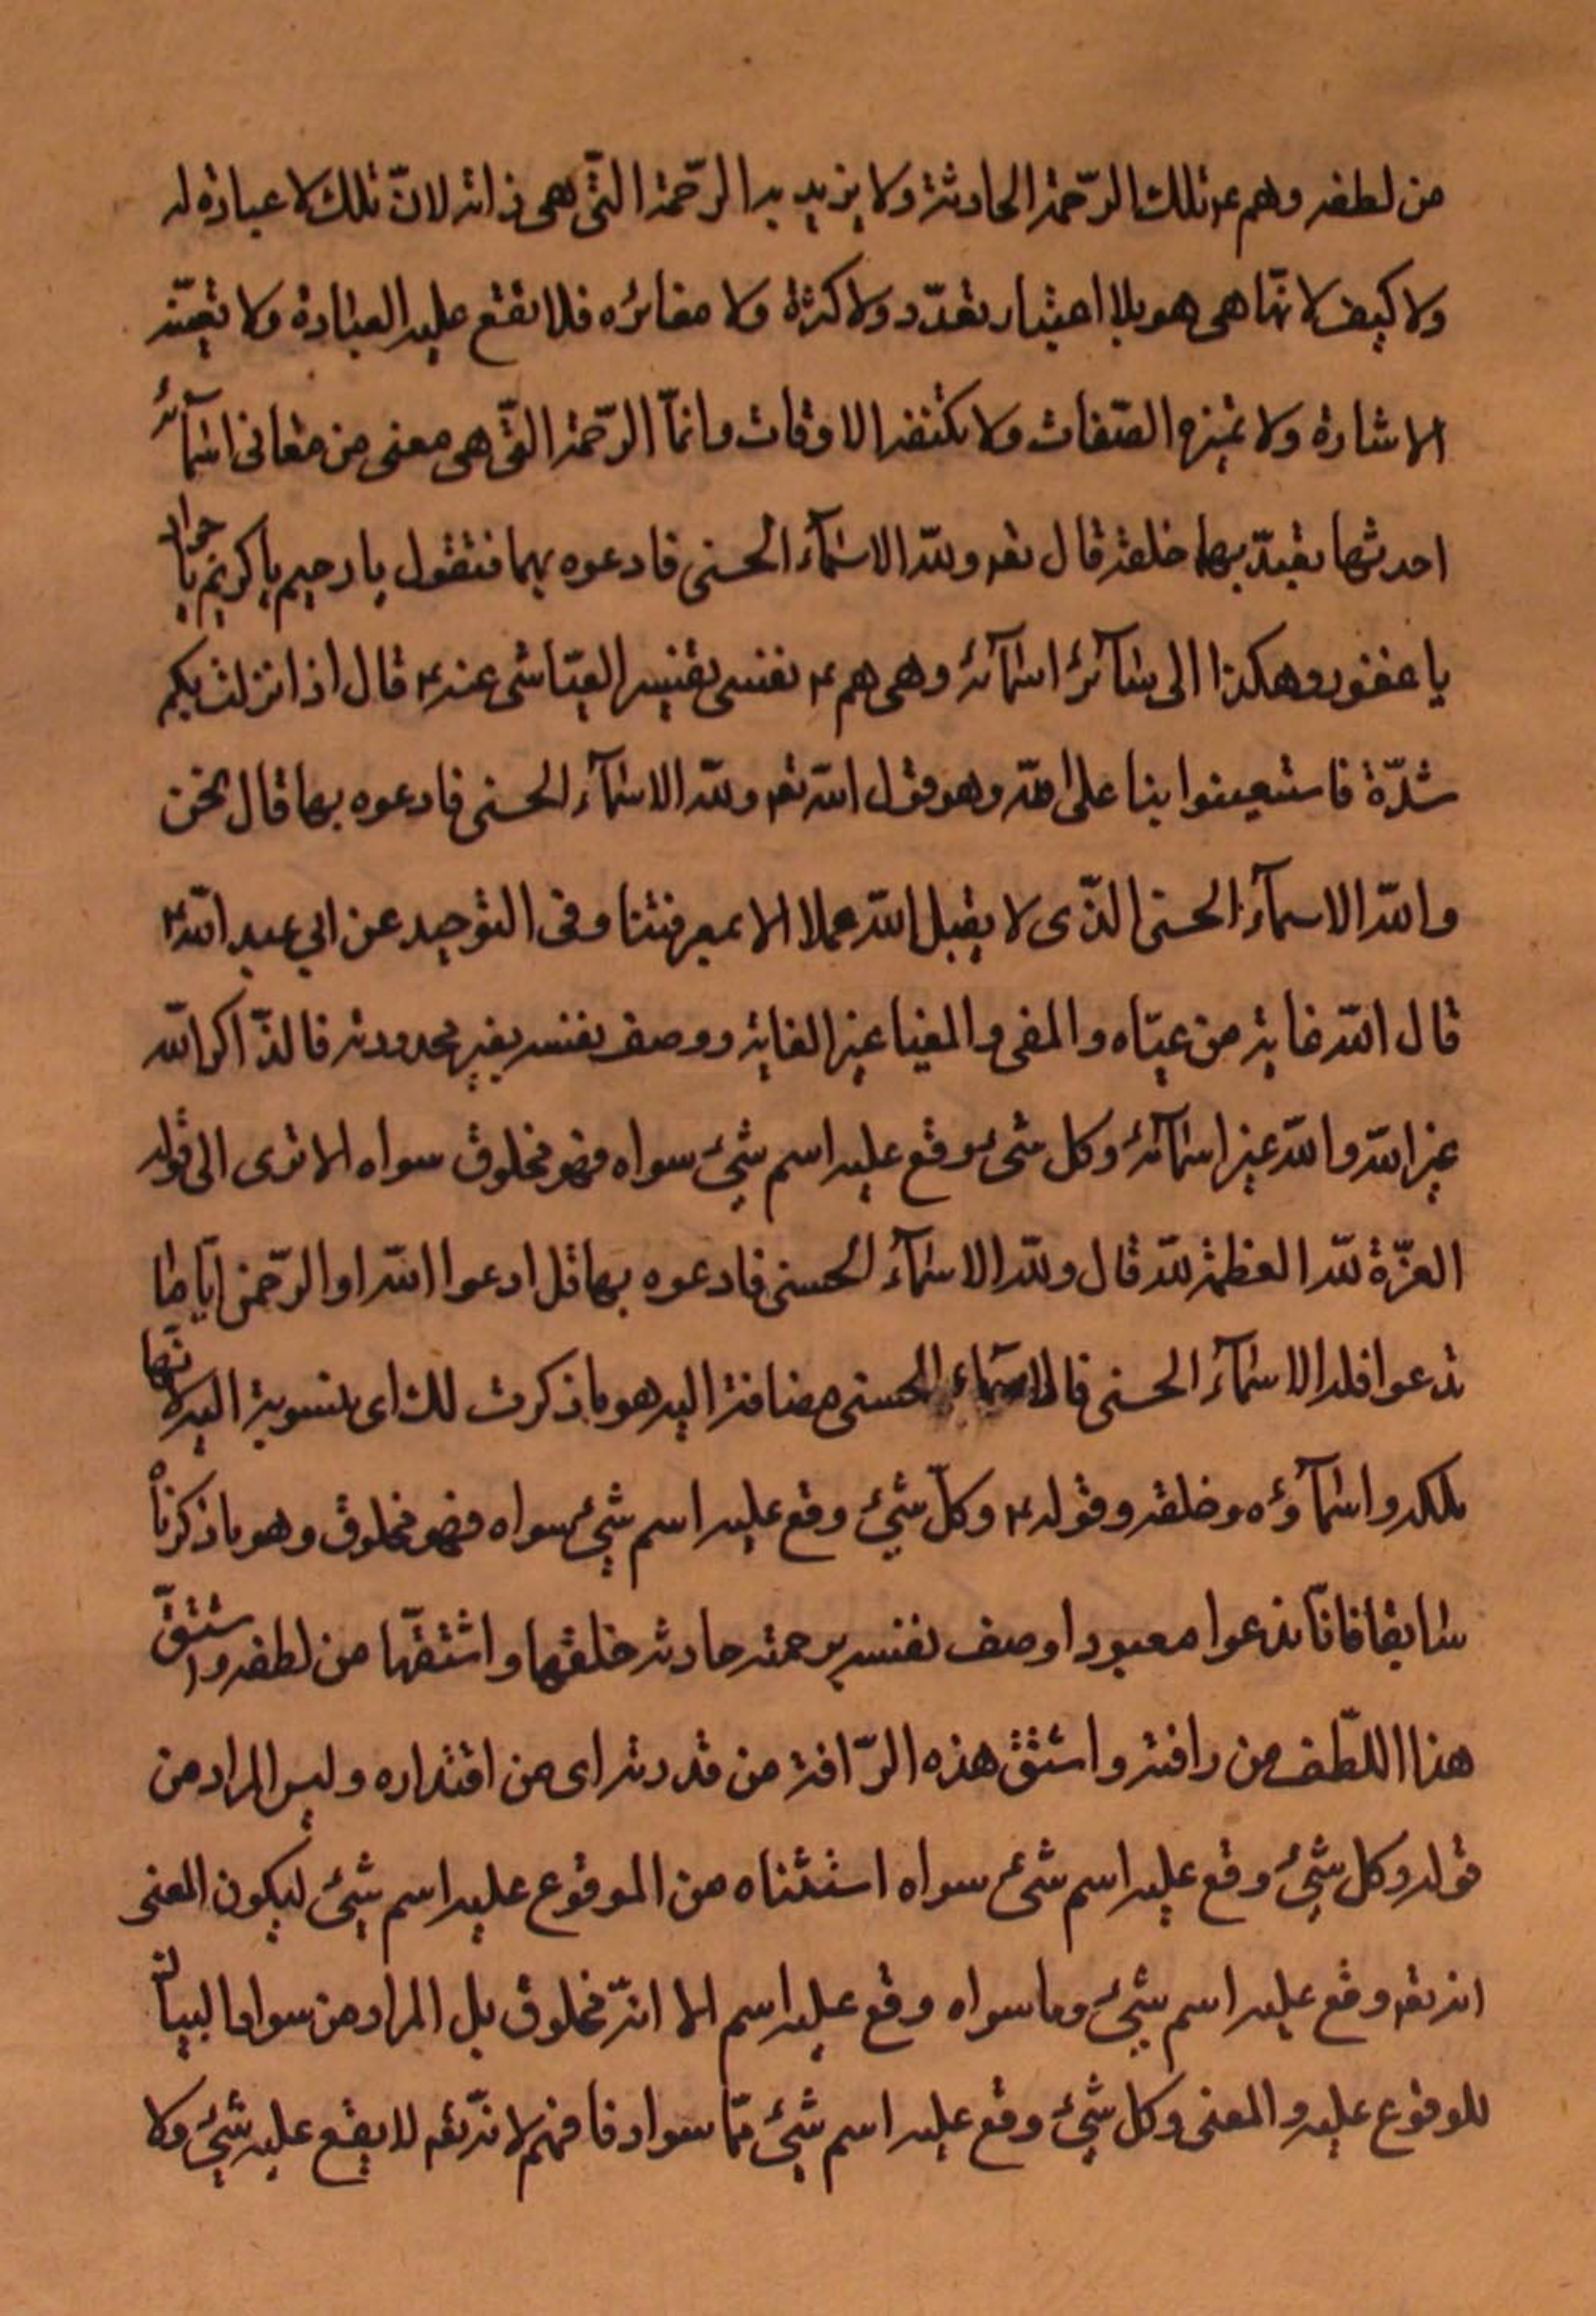 من لطفه وهم ع تلك الرّحمة الحادثة ولا يريد بها الرّحمة الّتى هى ذاته لانّ تلك لا عبارة له
ولا كيف لانّها هى هو بلا اعتبار تعدّد ولا كثرة ولا مغائره فلا تقع عليه العبارة ولا تعيّنه
الاشارة ولا تميزه الصّفات ولا تكتنفه الاوقات وانمّا الرّحمة الّتى هى معنى من معانى اسمآئه
احدثها تعبّد بها خلقه قال تعه ولله الاسمآء الحسنى فادعوه بها فتقول يا رحيم يا كريم يا جواد
يا غفور وهكذا الى سآئر اسمآئه وهى هم ع نفسى تفسير العيّاشى عنه ع قال اذا نزلت بكم
شدّة فاستعينوا بنا على الله وهو قول الله تعه ولله الاسمآء الحسنى فادعوه بها قال نحن
والله الاسمآء الحسنى الّذى لا يقبل الله عملا الا بمعرفتنا وفى التوحيد عن ابي عبد الله ع
قال الله غاية من غيّاه والمغى والمغيا غير الغاية ووصف نفسه بغير محدودية فالذّاكر الله
غير الله والله غير اسمآئه وكل شئ وقع عليه اسم شئ سواه فهو مخلوق سواه الا ترى الى قوله
العزّة لله العظمة لله قال ولله الاسمآء الحسنى فادعوه بها قل ادعوا الله او الرّحمن ايّا ما
تدعوا فله الاسمآء الحسنى فالاسماء الحسنى مضافة اليه هو ما ذكرت لك اى منسوبة اليه لانّها
ملكه واسمآؤه وخلقه وقوله ع وكلّ شئ وقع عليه اسم شئ سواه فهو مخلوق وهو ما ذكرناه
سابقا فانّا ندعوا معبودا وصف نفسه برحمة حادثة خلقها واشتقّها من لطفه واشتقّ
هذا اللّطف من رافته واشتق هذه الرّافة من قدرته اى من اقتداره وليس المراد من
قوله وكل شئ وقع عليه اسم شئ سواه استثناه من الموقوع عليه اسم شئ ليكون المعنى
انه تعه وقع عليه اسم شئ وما سواه وقع عليه اسم الا انّه مخلوق بل المراد من سواه البيان
للوقوع عليه والمعنى وكل شئ وقع عليه اسم شئ ممّا سواه فافهم لانّه تعه لا يقع عليه شئ ولا